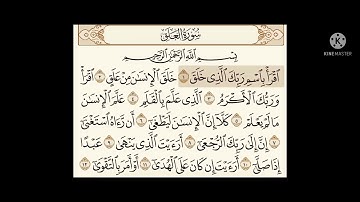 سُورَةُ العَلَقِ
بِسْمِ اللَّهِ الرَّحْمَٰنِ الرَّحِيمِ
اقْرَأْ بِاسْمِ رَبِّكَ الَّذِي خَلَقَ ١ خَلَقَ الْإِنسَانَ مِنْ عَلَقٍ ٢ اقْرَأْ
وَرَبُّكَ الْأَكْرَمُ ٣ الَّذِي عَلَّمَ بِالْقَلَمِ ٤ عَلَّمَ الْإِنسَانَ
مَا لَمْ يَعْلَمْ ٥ كَلَّا إِنَّ الْإِنسَانَ لَيَطْغَىٰ ٦ أَن رَّآهُ اسْتَغْنَىٰ
٧ إِنَّ إِلَىٰ رَبِّكَ الرُّجْعَىٰ ٨ أَرَأَيْتَ الَّذِي يَنْهَىٰ ٩ عَبْدًا
إِذَا صَلَّىٰ ١٠ أَرَأَيْتَ إِن كَانَ عَلَى الْهُدَىٰ ١١ أَوْ أَمَرَ بِالتَّقْوَىٰ ١٢
KINEMASTER